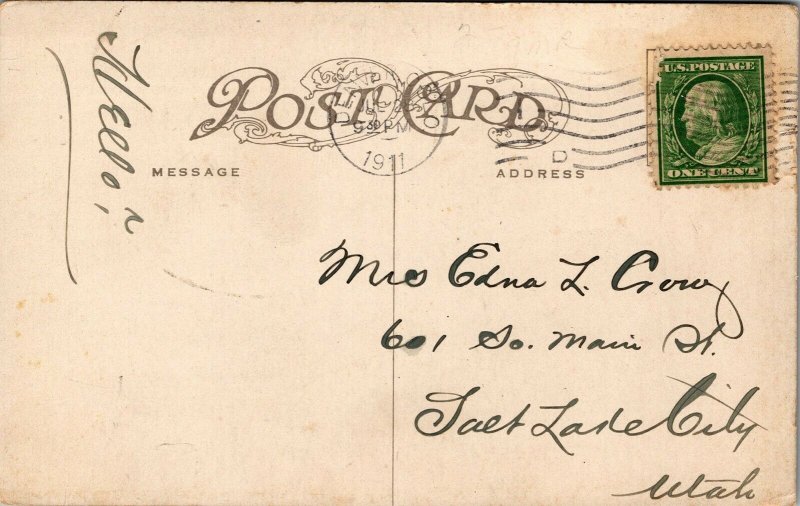 Hello?
POST CARD
9 30 PM
1911
D
U.S. POSTAGE
ONE CENT
MESSAGE
ADDRESS
Edna L.
601 So. Main St.
Salt Lake City
Utah